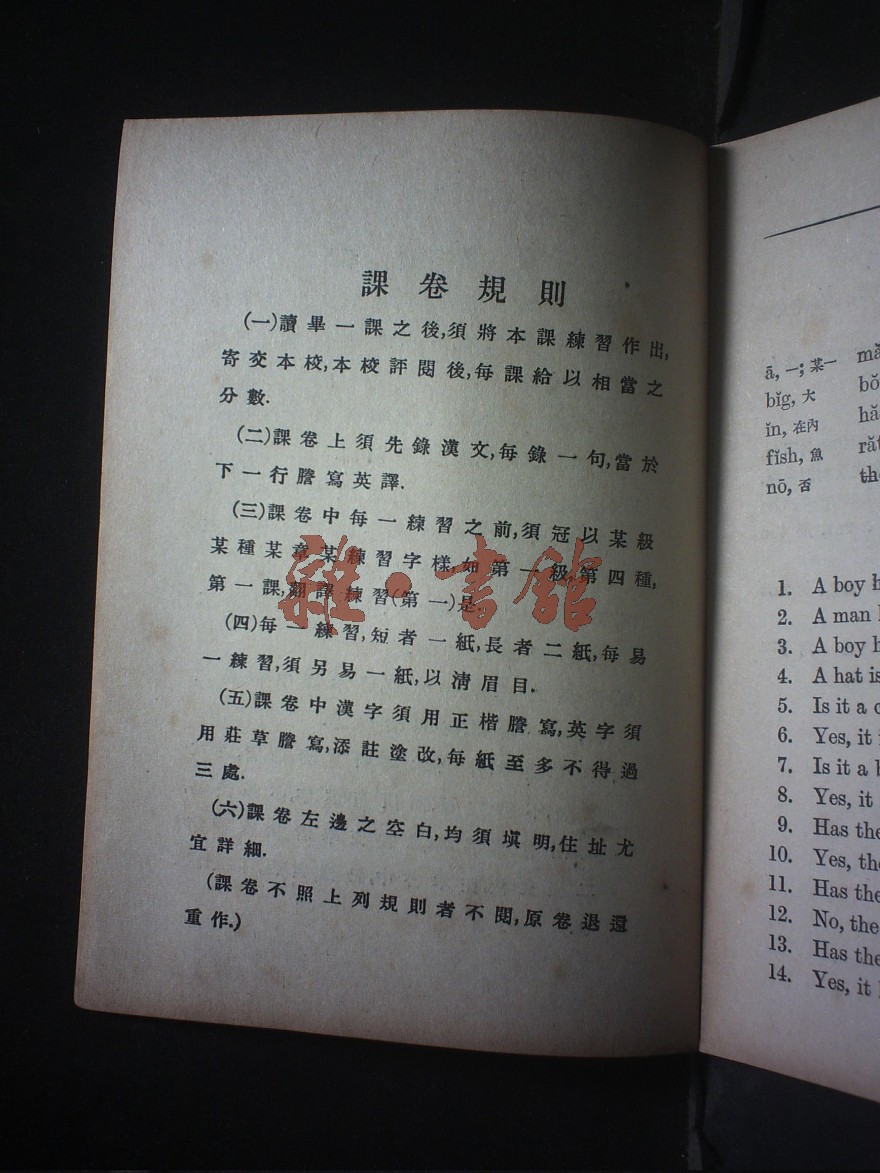 課卷規則
(一)讀畢一課之後,須將本課練習作出,
寄交本校,本校評閱後,每課給以相當之
分數.
(二)課卷上須先錄漢文,每錄一句,當於
下一行謄寫英譯.
(三)課卷中每一練習之前,須冠以某級
某種某章某練習字樣,如第一級第四種,
第一課,翻譯練習(第一)是.
(四)每一練習,短者一紙,長者二紙,每易
一練習,須另易一紙,以清眉目.
(五)課卷中漢字須用正楷謄寫,英字須
用莊草謄寫,添註塗改,每紙至多不得過
三處.
(六)課卷左邊之空白,均須塡明,住址尤
宜詳細.
(課卷不照上列規則者不閱,原卷退還
重作.)
雜·書館
ā, 一; 某一
bĭg, 大
ĭn, 在內
fĭsh, 魚
nō, 否
1. A boy
2. A man
3. A boy
4. A hat is
5. Is it a
6. Yes, it
7. Is it a
8. Yes, it
9. Has the
10. Yes, the
11. Has the
12. No, the
13. Has the
14. Yes, it